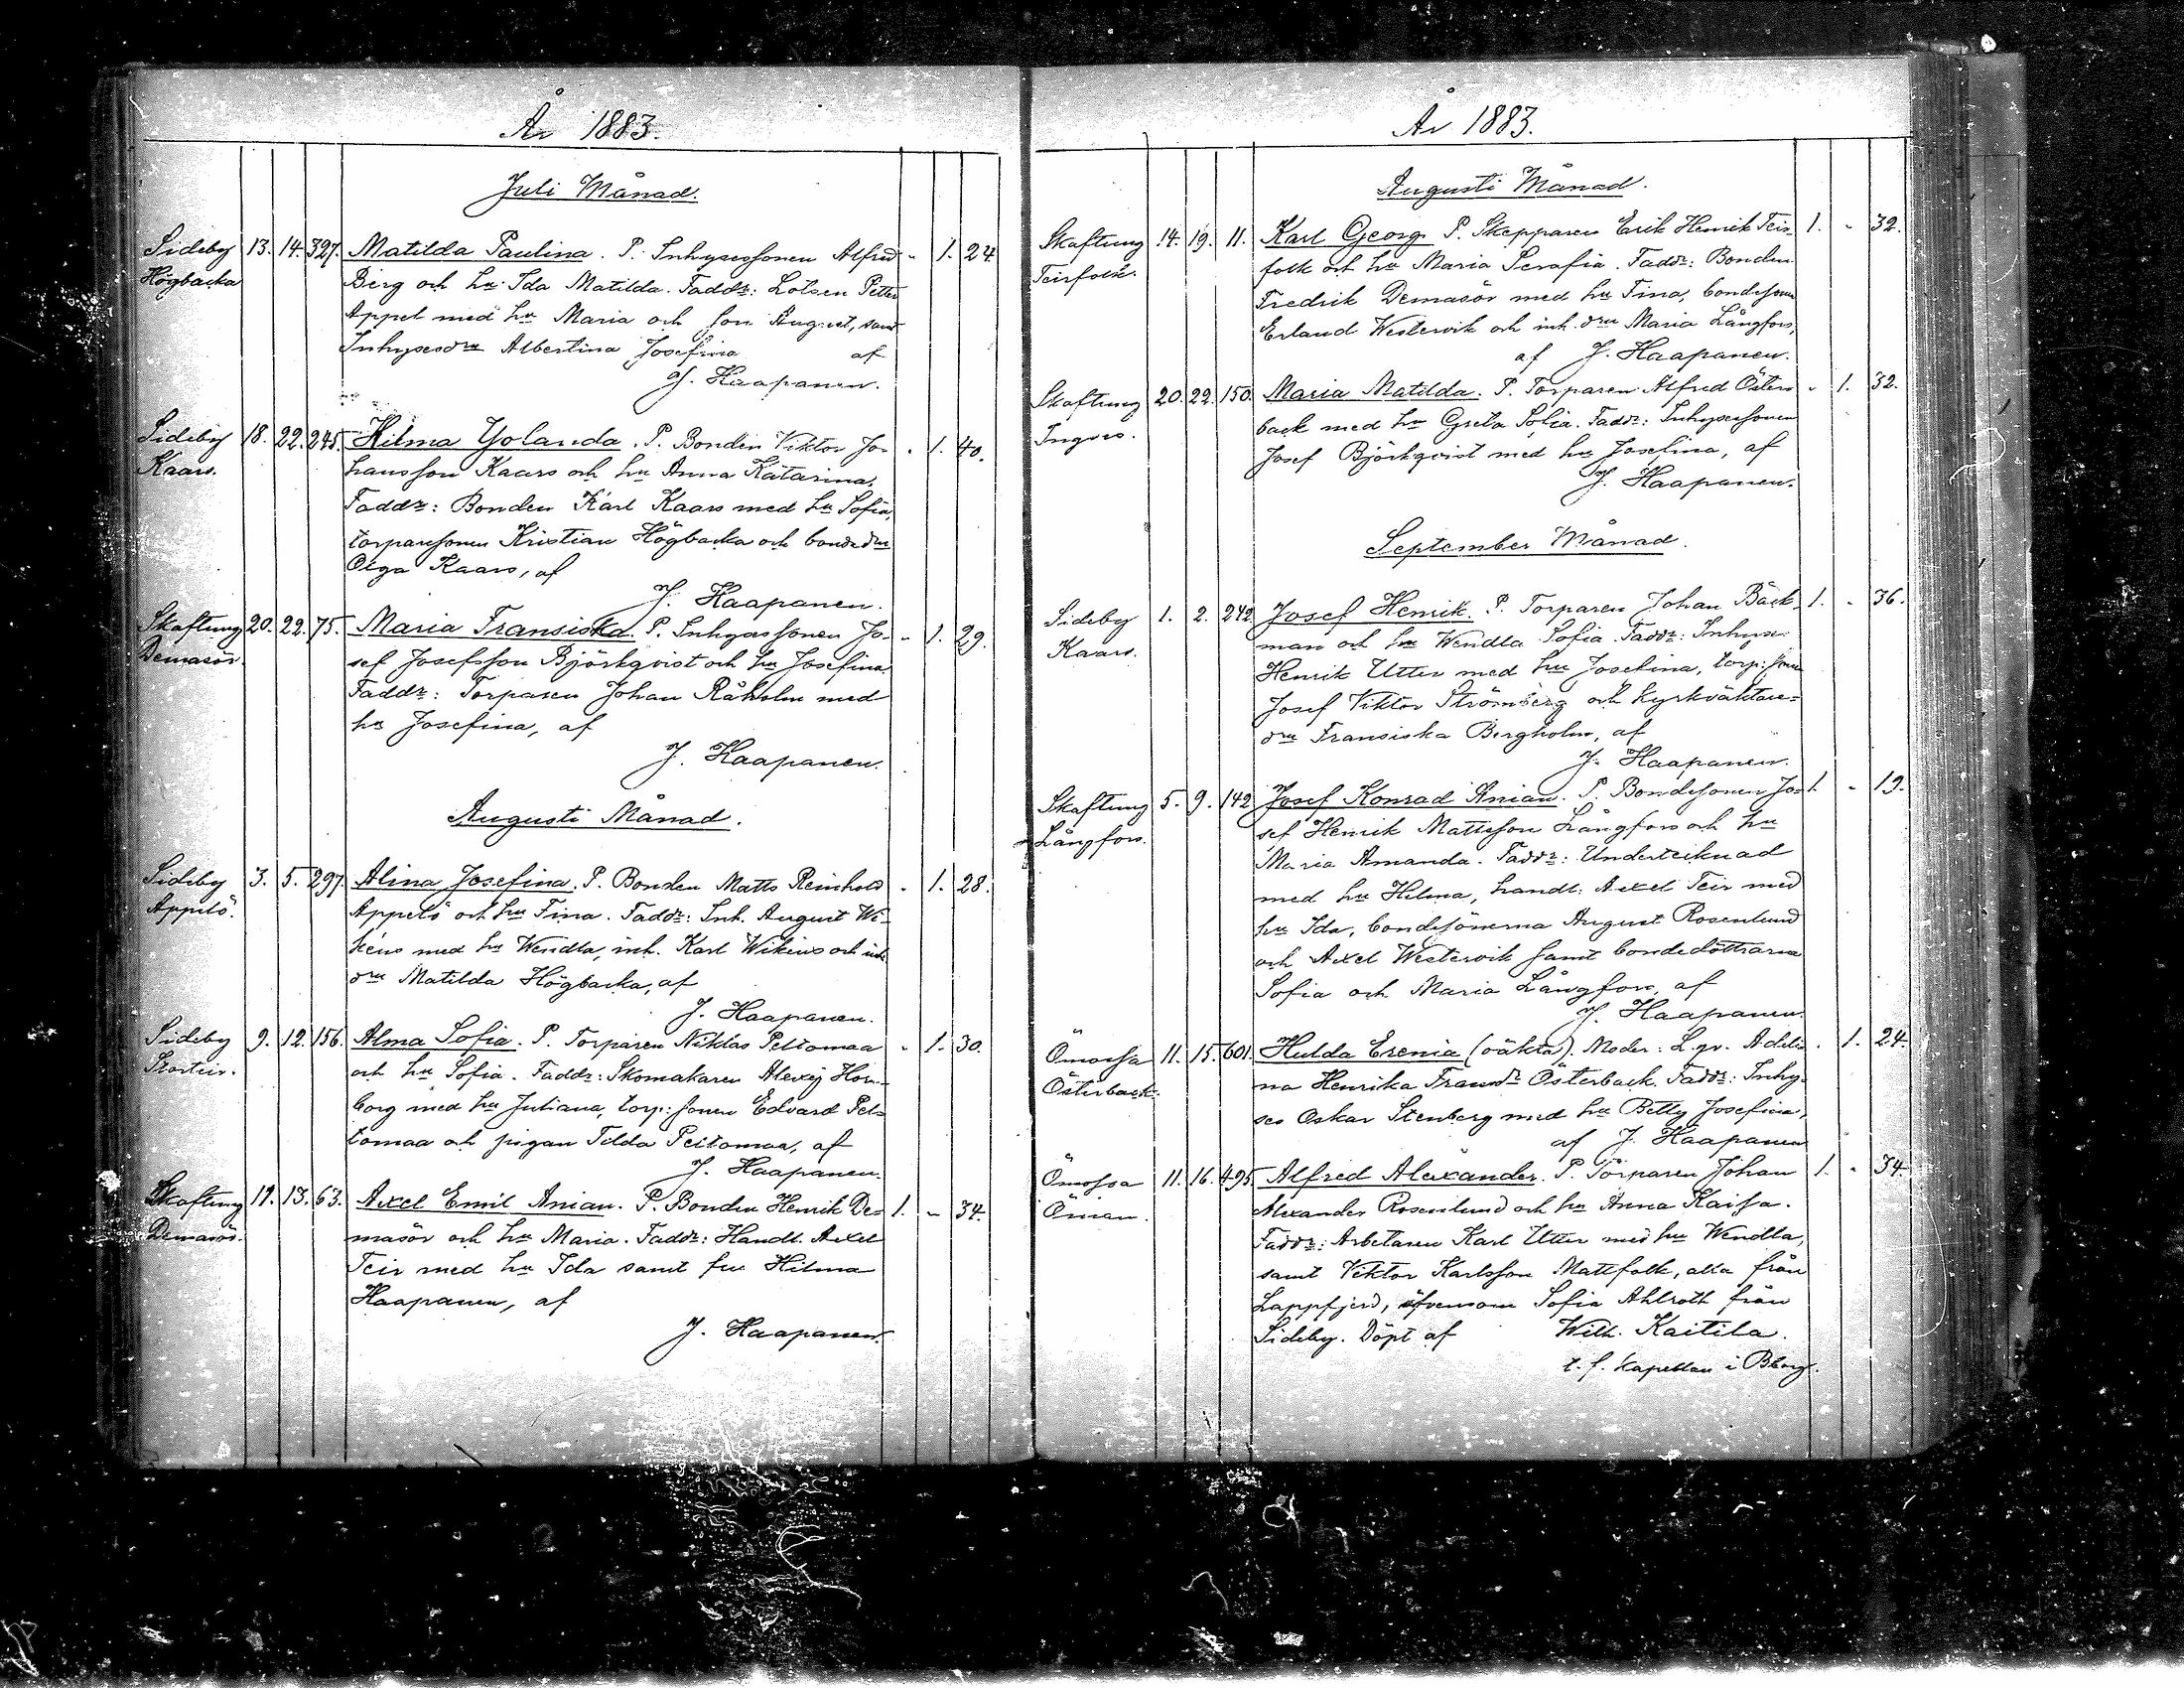 År 1883.
Juli Månad.
Sideby 13. 14. 327. Matilda Paulina. P. Inhysessonen Alfred " 1. 24.
Högbacka Berg och hu Ida Matilda. Faddr: Lotsen Petter
Appel med hu Maria och son August, samt
Inhysesdrn Albertina Josefina af
J. Haapanen.
Sideby 18. 22. 245. Hilma Yolanda. P. Bonden Viktor Jo- " 1. 40.
Kaars. hansson Kaars och hu Anna Katarina,
Faddr: Bonden Karl Kaars med hu Sofia,
torparesonen Kristian Högbacka och bondedrn
Olga Kaars, af
J. Haapanen.
Skaftung 20. 22. 75. Maria Fransiska. P. Inhysessonen Jo- " 1. 29.
Demasör. sef Josefsson Björkqvist och hu Josefina.
Faddr: Torparen Johan Råholm med
hu Josefina, af
J. Haapanen.
Augusti Månad.
Sideby 3. 5. 297. Alina Josefina. P. Bonden Matts Reinhold " 1. 28.
Appelö. Appelö och hu Fina. Faddr: Inh. August Wi-
kéns med hu Wendla, inh. Karl Wikéns och inh.
drn Matilda Högbacka, af
J. Haapanen.
Sideby 9. 12. 156. Alma Sofia. P. Torparen Niklas Peltomaa " 1. 30.
Storteir. och hu Sofia. Faddr: Skomakaren Alexej Hom-
borg med hu Juliana, torp: sonen Edvard Pel-
tomaa och pigan Tilda Peltomaa, af
J. Haapanen.
Skaftung 11. 13. 63. Axel Emil Anian. P. Bonden Henrik De- 1. " 34.
Demasör. masör och hu Maria. Faddr: Handl. Axel
Teir med hu Ida samt fru Hilma
Haapanen, af
J. Haapanen.
År 1883.
Augusti Månad.
Skaftung 14. 19. 11. Karl Georg P. Skepparen Erik Henrik Teir- 1. " 32.
Teirfolk. folk och hu Maria Serafia. Faddr: Bonden
Fredrik Demasör med hu Fina, bondesonen
Erland Westervik och inh. drn Maria Långfors,
af J. Haapanen.
Skaftung 20. 22. 150. Maria Matilda. P. Torparen Alfred Öster- " 1. 32.
Ingves. back med hu Greta Sofia. Faddr: Inhysessonen
Josef Björkqvist med hu Josefina, af
J. Haapanen.
September Månad.
Sideby 1. 2. 242. Josef Henrik. P. Torparen Johan Bäck- 1. " 36.
Kaars. man och hu Wendla Sofia. Faddr: Inhyses
Henrik Utter med hu Josefina, torp: sonen
Josef Viktor Strömberg och kyrkväktare-
drn Fransiska Bergholm, af
J. Haapanen.
Skaftung 5. 9. 142 Josef Konrad Anian. P. Bondesonen Jo- 1. " 19.
Långfors. sef Henrik Mattsson Långfors och hu
Maria Amanda. Faddr: Undertecknad
med hu Hilma, handl: Axel Teir med
hu Ida, bondesönerna August Rosenlund
och Axel Westervik samt bondedöttrarna
Sofia och Maria Långfors, af
J. Haapanen.
Ömossa 11. 15. 601. Hulda Erenia (oäkta). Moder: L. qv. Adeli- " 1. 24.
Österback. na Henrika Fransdr Österback. Faddr: Inhy-
ses Oskar Stenberg med hu Betty Josefina,
af J. Haapanen
Ömossa 11. 16. 495. Alfred Alexander. P. Torparen Johan 1. " 34.
Öman. Alexander Rosenlund och hu Anna Kaisa.
Faddr: Arbetaren Karl Utter med hu Wendla,
samt Viktor Karlsson Mattfolk, alla från
Lappfjerd, äfvensom Sofia Ahlroth från
Sideby. Döpt af Wilh. Kaitila.
t. f. kapellan i Bborg.